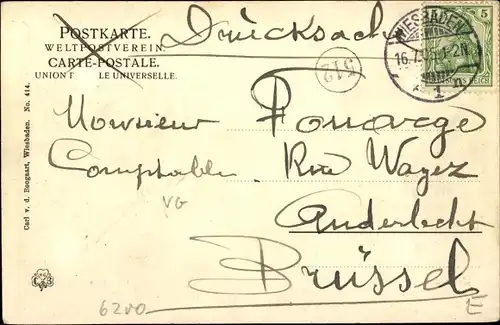 POSTKARTE.
WELTPOSTVEREIN.
CARTE-POSTALE.
UNION T LE UNIVERSELLE.
Drucksache
WIESBADEN
16.7. 1-2N
1
5
REICH
512
Monsieur Fonarge
Comptable Rue Wayez
Anderlecht
Brüssel
VG
6200
E
Carl v. d. Boogaart, Wiesbaden. No. 414.